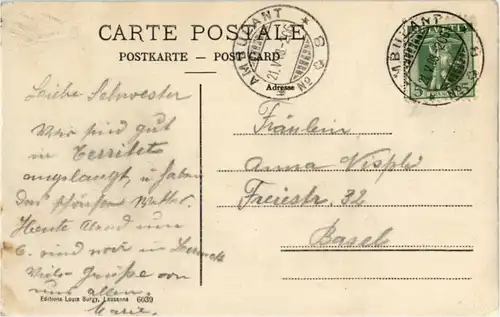 CARTE POSTALE
POSTKARTE — POST CARD
AMBULANT
21.V
No
Adresse
AMBULANT
No
Liebe Schwester
Wir sind gut
in Territet
angelangt, u haben
das schönste Wetter.
Heute Abend um
6. sind noch in
Viele Grüße von
uns allen
Marie.
Fräulein
Anna Vispli
Freiestr. 32
Basel
Editions Louis Burgy, Lausanne 6039